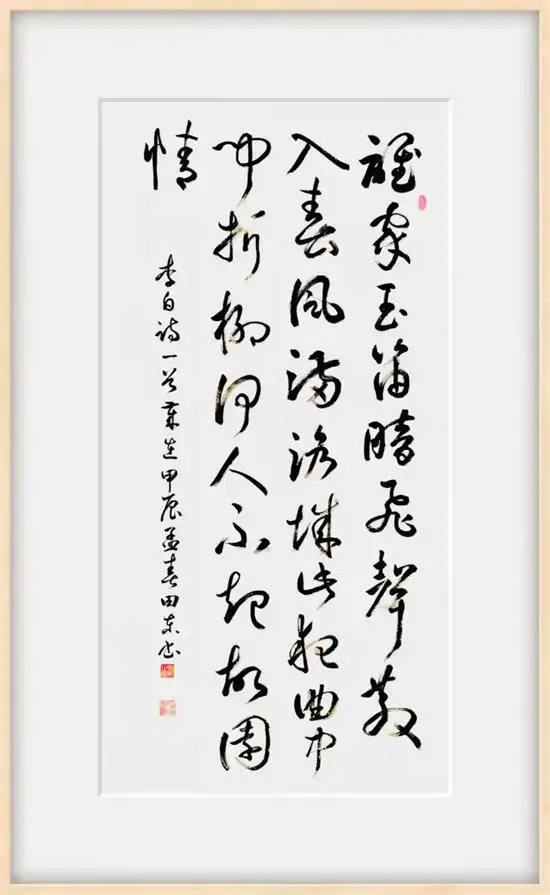 誰家玉笛暗飛聲散
入春風滿洛城此夜曲中
聞折柳何人不起故園
情
李白詩一首歲在甲辰孟春田東書